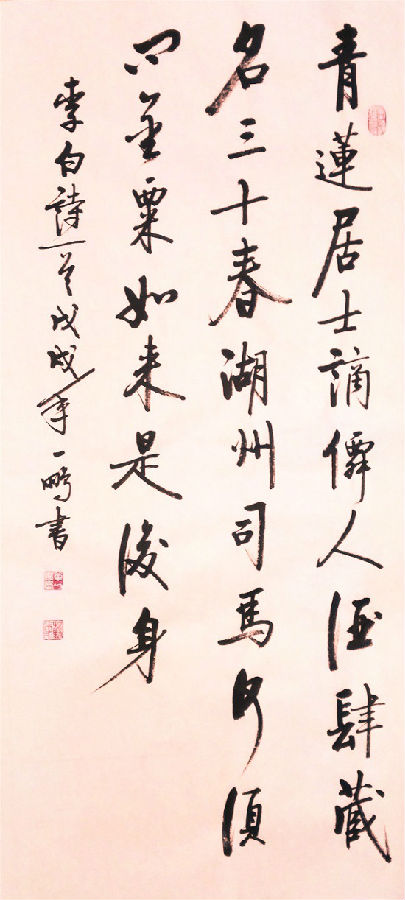 青蓮居士謫僊人酒肆藏
名三十春湖州司馬何須
問金粟如来是後身
李白詩一首戊戌年一鹏書